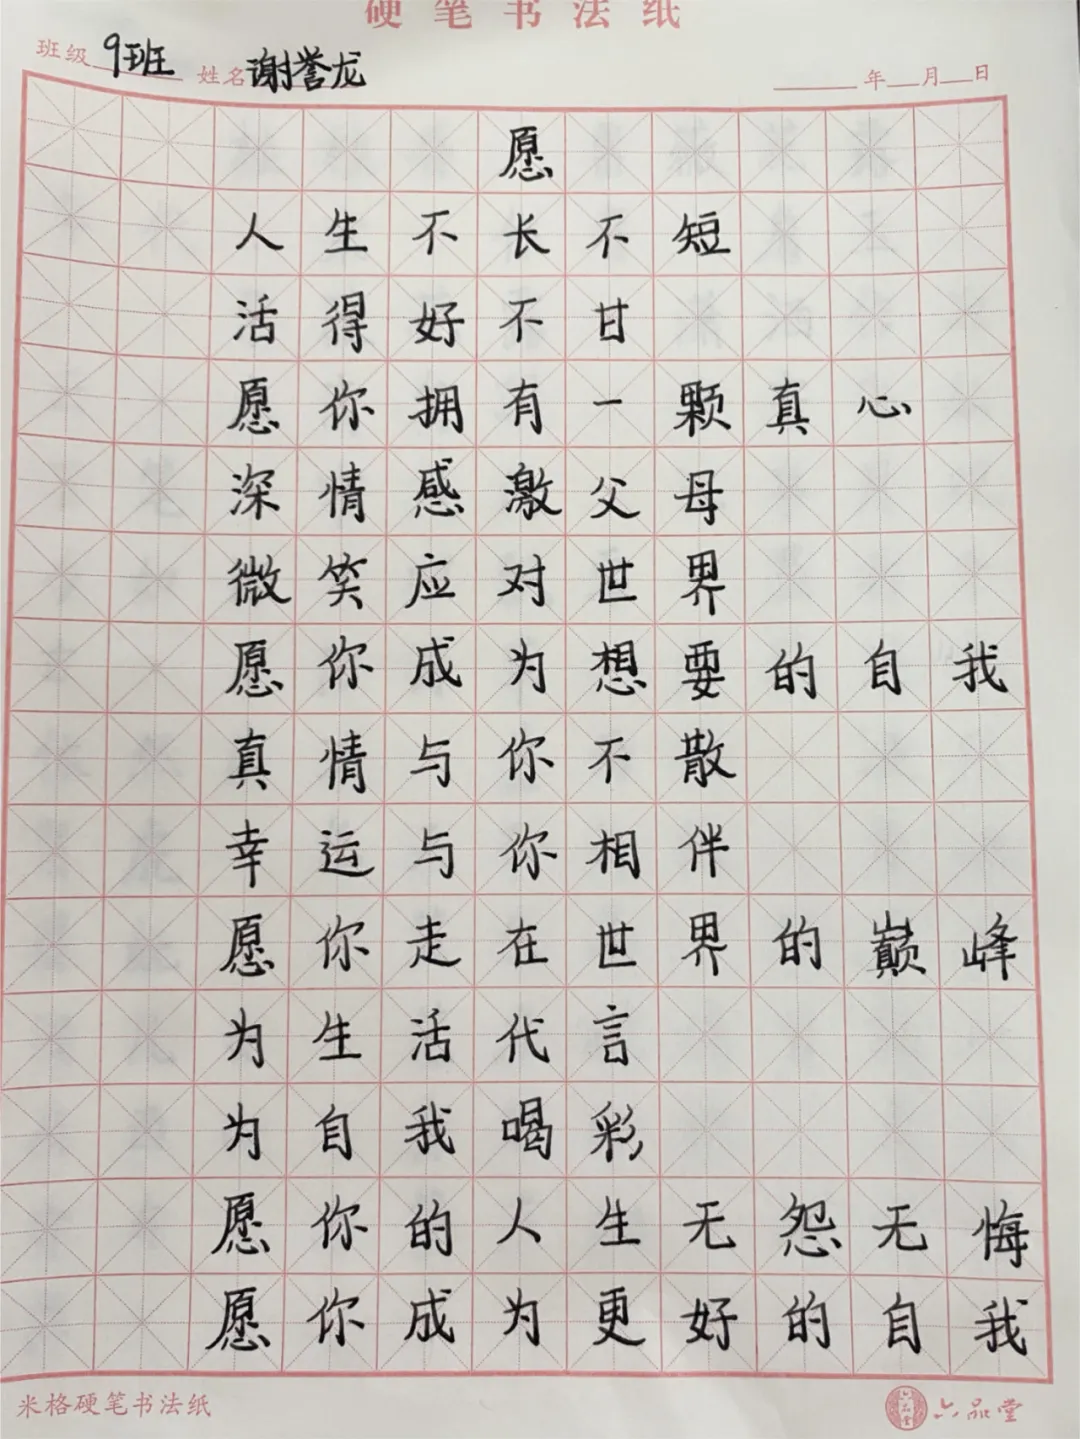 硬笔书法纸
班级 9班 姓名 谢誉龙 年 月 日
愿
人生不长不短
活得好不甘
愿你拥有一颗真心
深情感激父母
微笑应对世界
愿你成为想要的自我
真情与你不散
幸运与你相伴
愿你走在世界的巅峰
为生活代言
为自我喝彩
愿你的人生无怨无悔
愿你成为更好的自我
米格硬笔书法纸
六品堂 六品堂